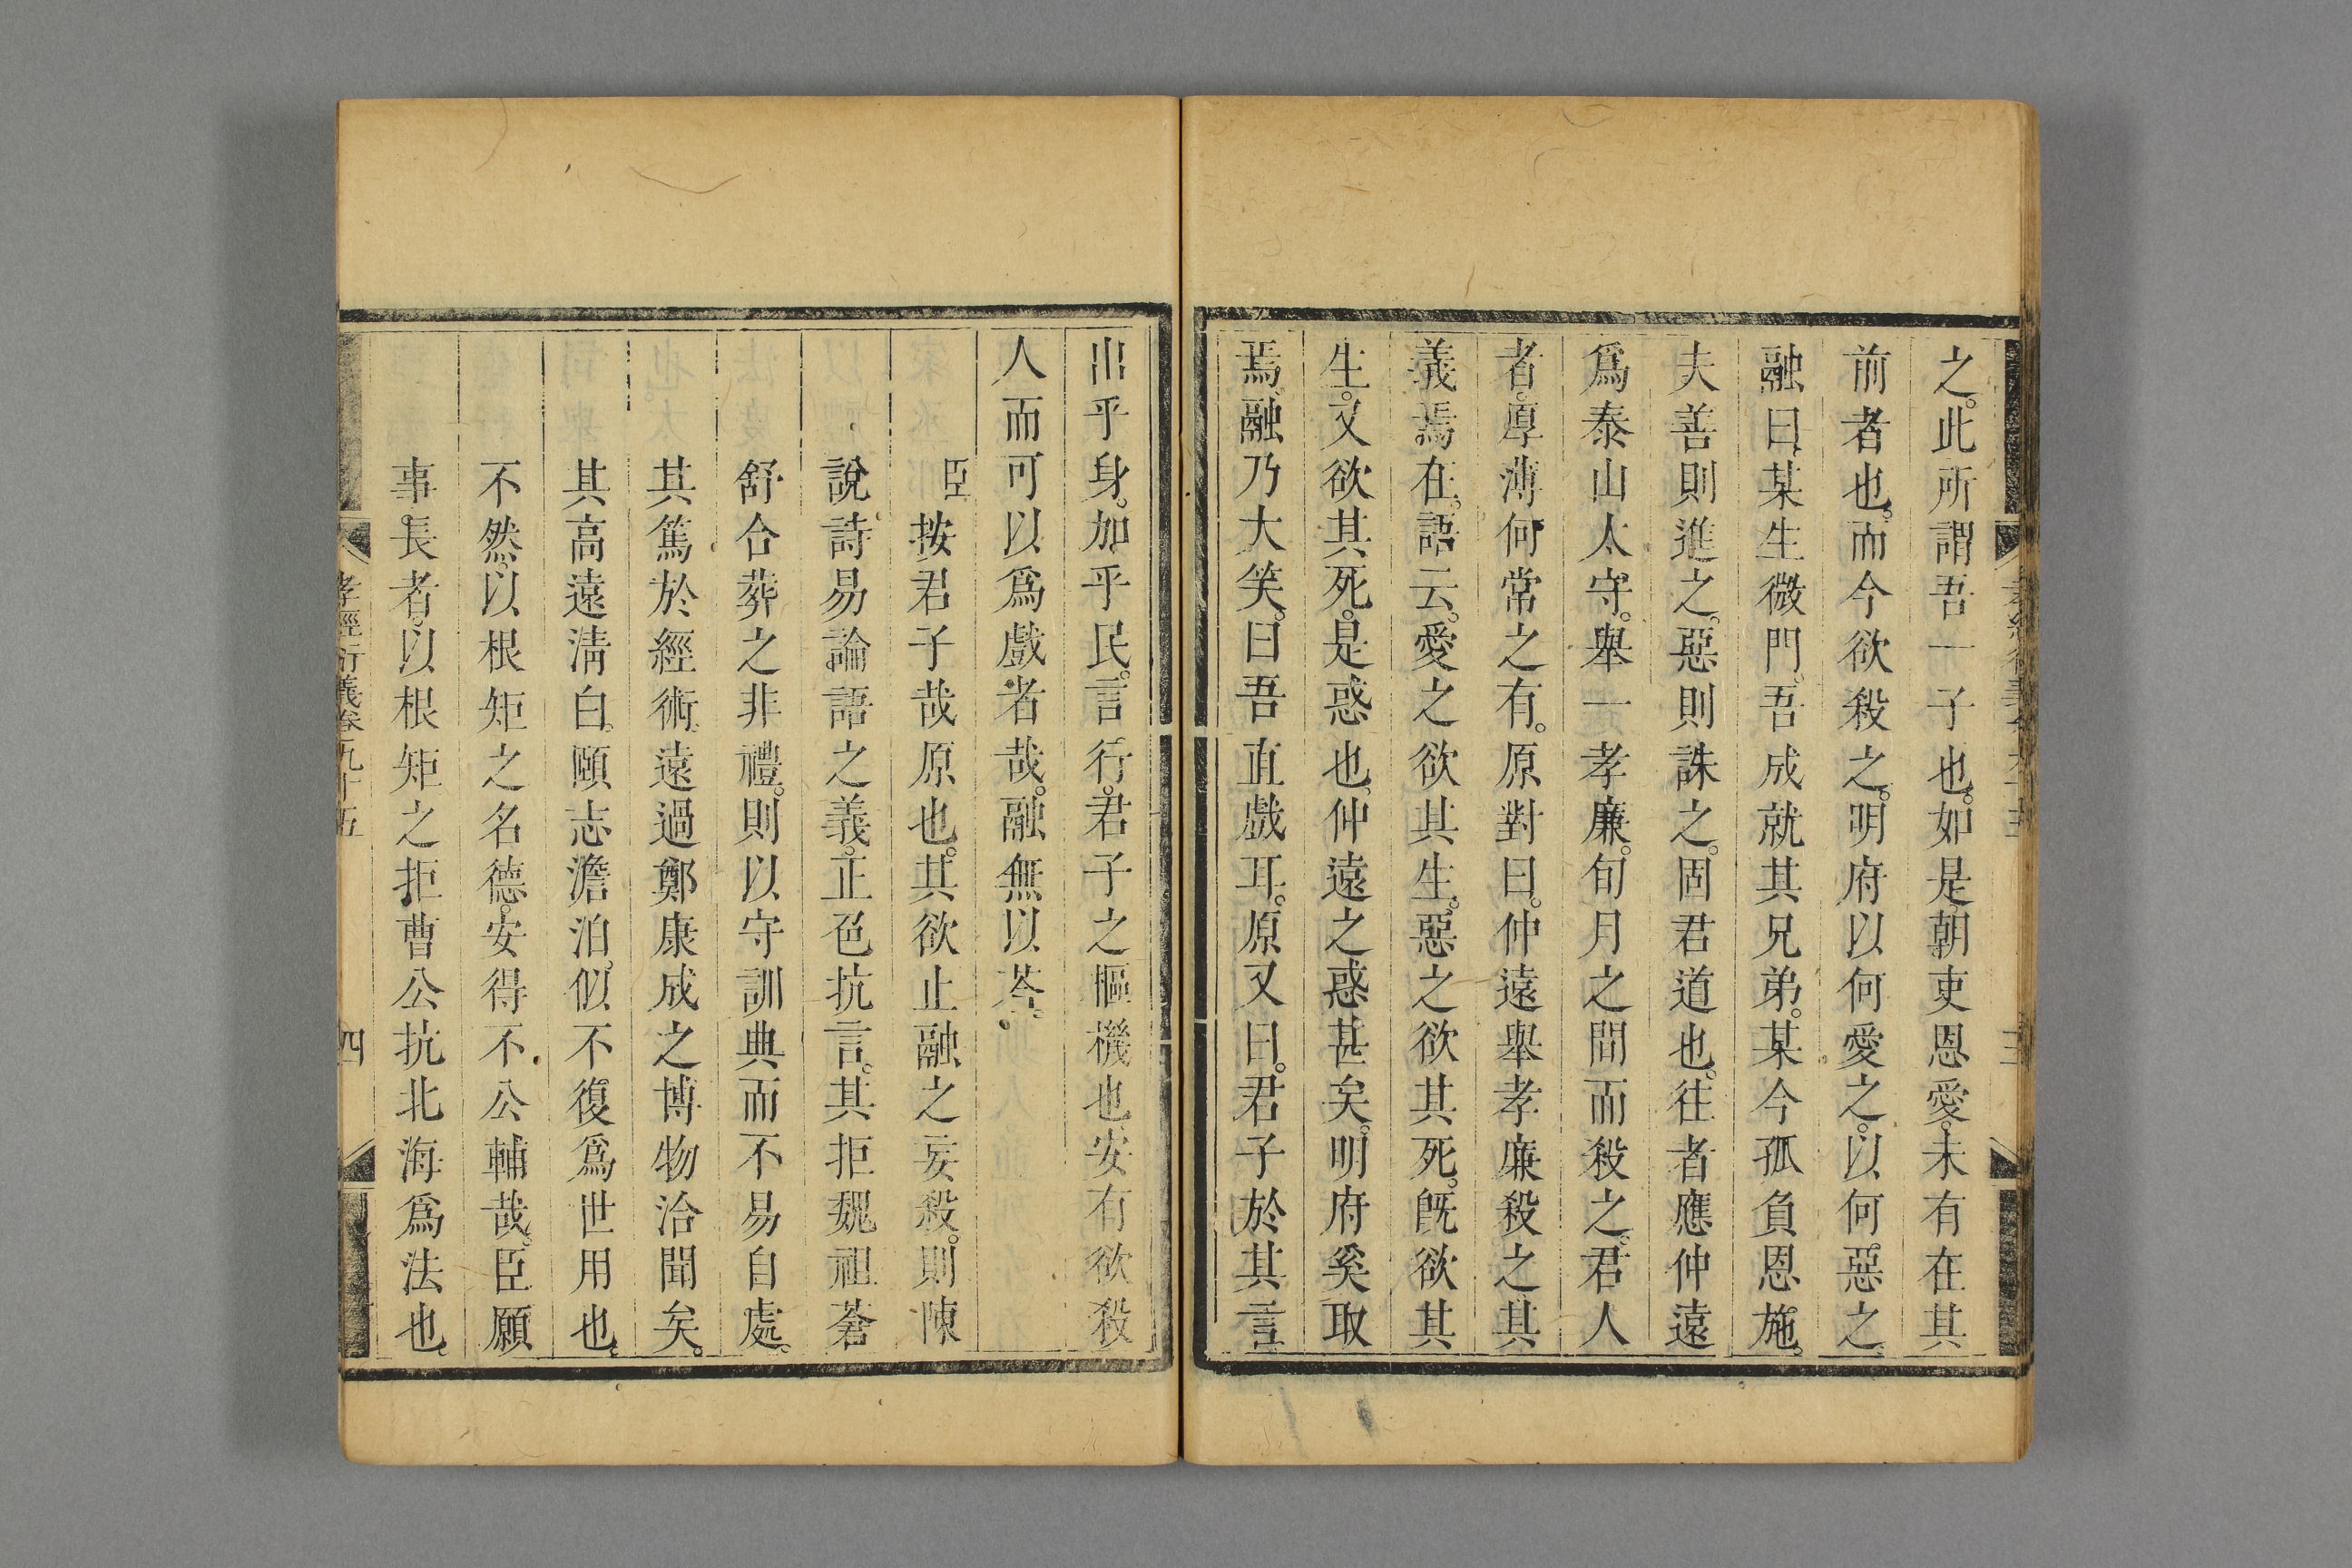 之。此所謂吾一子也。如是。朝吏恩愛。未有在其
前者也。而今欲殺之。明府以何愛之。以何惡之。
融曰。某生微門。吾成就其兄弟。某今孤負恩施。
夫善則進之。惡則誅之。固君道也。往者應仲遠
爲泰山太守。舉一孝廉。旬月之間而殺之。君人
者。厚薄何常之有。原對曰。仲遠舉孝廉殺之。其
義焉在。語云。愛之欲其生。惡之欲其死。旣欲其
生。又欲其死。是惑也。仲遠之惑甚矣。明府奚取
焉。融乃大笑。曰吾直戲耳。原又曰。君子於其言。
出乎身。加乎民。言行。君子之樞機也。安有欲殺
人而可以爲戲者哉。融無以荅。
臣按君子哉原也。其欲止融之妄殺。則陳
說詩易論語之義。正色抗言。其拒魏祖蒼
舒合葬之非禮。則以守訓典而不易自處。
其篤於經術。遠過鄭康成之博物洽聞矣。
其高遠淸白。頤志澹泊。似不復爲世用也。
不然。以根矩之名德。安得不公輔哉。臣願
事長者。以根矩之拒曹公抗北海爲法也。
孝經衍義卷九十五 四